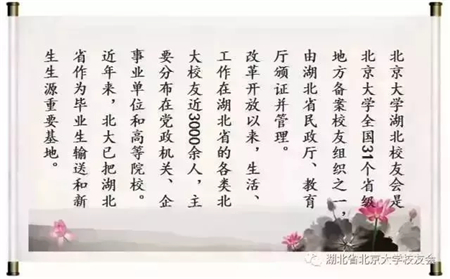 北京大学湖北校友会是
北京大学全国31个省级
地方备案校友组织之一,
由湖北省民政厅、教育
厅颁证并管理。
改革开放以来,生活、
工作在湖北省的各类北
大校友近3000余人,主
要分布在党政机关、企
事业单位和高等院校。
近年来,北大已把湖北
省作为毕业生输送和新
生生源重要基地。
湖北省北京大学校友会